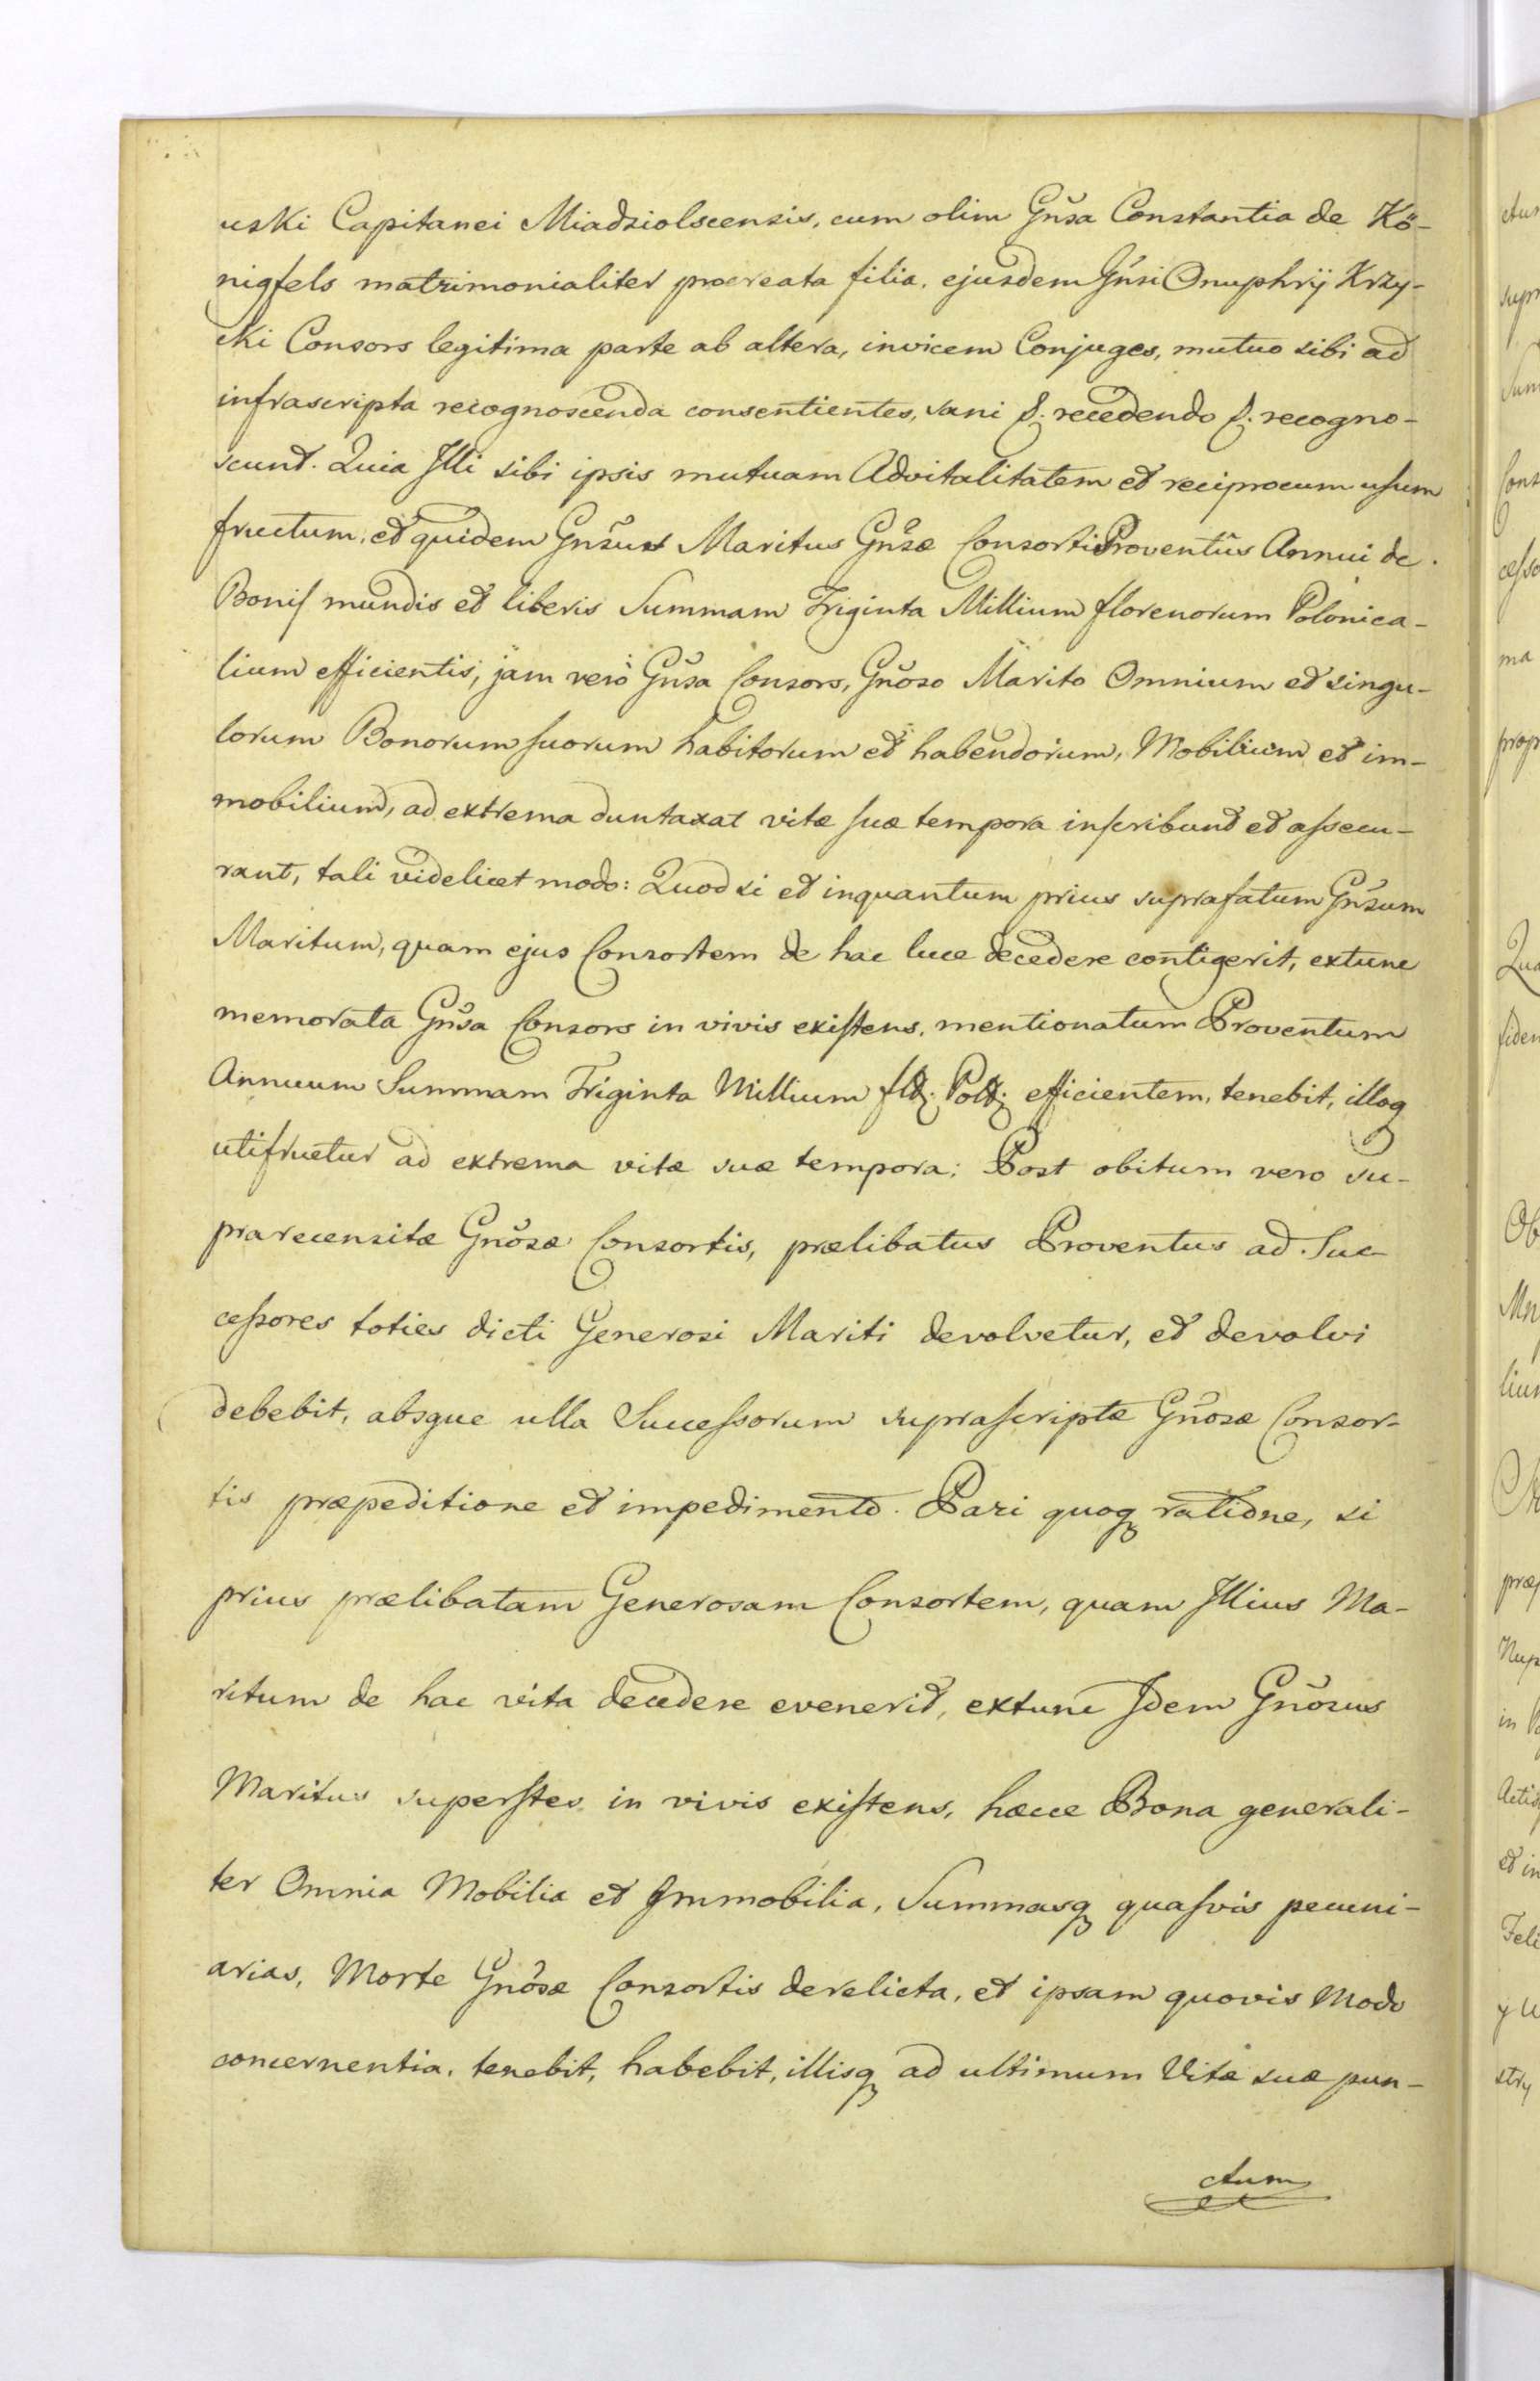 uski Capitanei Miadziolscensis, cum olim Gñsa Constantia de Kö-
nigfels matrimonialiter procreata filia, ejusdem Gñsi Onuphrÿ Krzy-
cki Consors legitima parte ab altera, invicem Conjuges, mutuo sibi ad
infrascripta recognoscenda consentientes, sani &. recedendo &. recogno-
scunt. Quia Illi sibi ipsis mutuam Advitalitatem et reciprocum usum
fructum, et quidem Gnsus Maritus Gñsæ Consorti Proventûs Annui de
Bonis mundis et liberis Summam Triginta Millium florenorum Polonica-
lium efficientis, jam vero Gñsa Consors, Gñoso Marito Omnium et singu-
lorum Bonorum suorum habitorum et habendorum, Mobilium et im-
mobilium, ad extrema duntaxat vitæ suæ tempora inscribunt et assecu-
rant, tali videlicet modo: Quod si et inquantum prius suprafatum Gñsum
Maritum, quam ejus Consortem de hac luce decedere contigerit, extunc
memorata Gñsa Consors in vivis existens, mentionatum Proventum
Annuum Summam Triginta Millium efficientem, tenebit, illoq
utifruetur ad extrema vitæ suæ tempora; Post obitum vero su-
prarecensitæ Gñosæ Consortis, prælibatus Proventus ad Suc-
cessores toties dicti Generosi Mariti devolvetur, et devolvi
debebit, absque ulla Successorum suprascriptæ Gñosæ Consor-
tis præpeditione et impedimento. Pari quoq ratione, si
prius prælibatam Generosam Consortem, quam Illius Ma-
ritum de hac vita decedere evenerit, extunc Idem Gñosus
Maritus superstes in vivis existens, hæcce Bona generali-
ter Omnia Mobilia et Immobilia, Summasq quasvis pecuni-
arias, Morte Gñosæ Consortis derelicta, et ipsam quovis Modo
concernentia, tenebit, habebit, illisq ad ultimum Vitæ suæ pun-
ctum